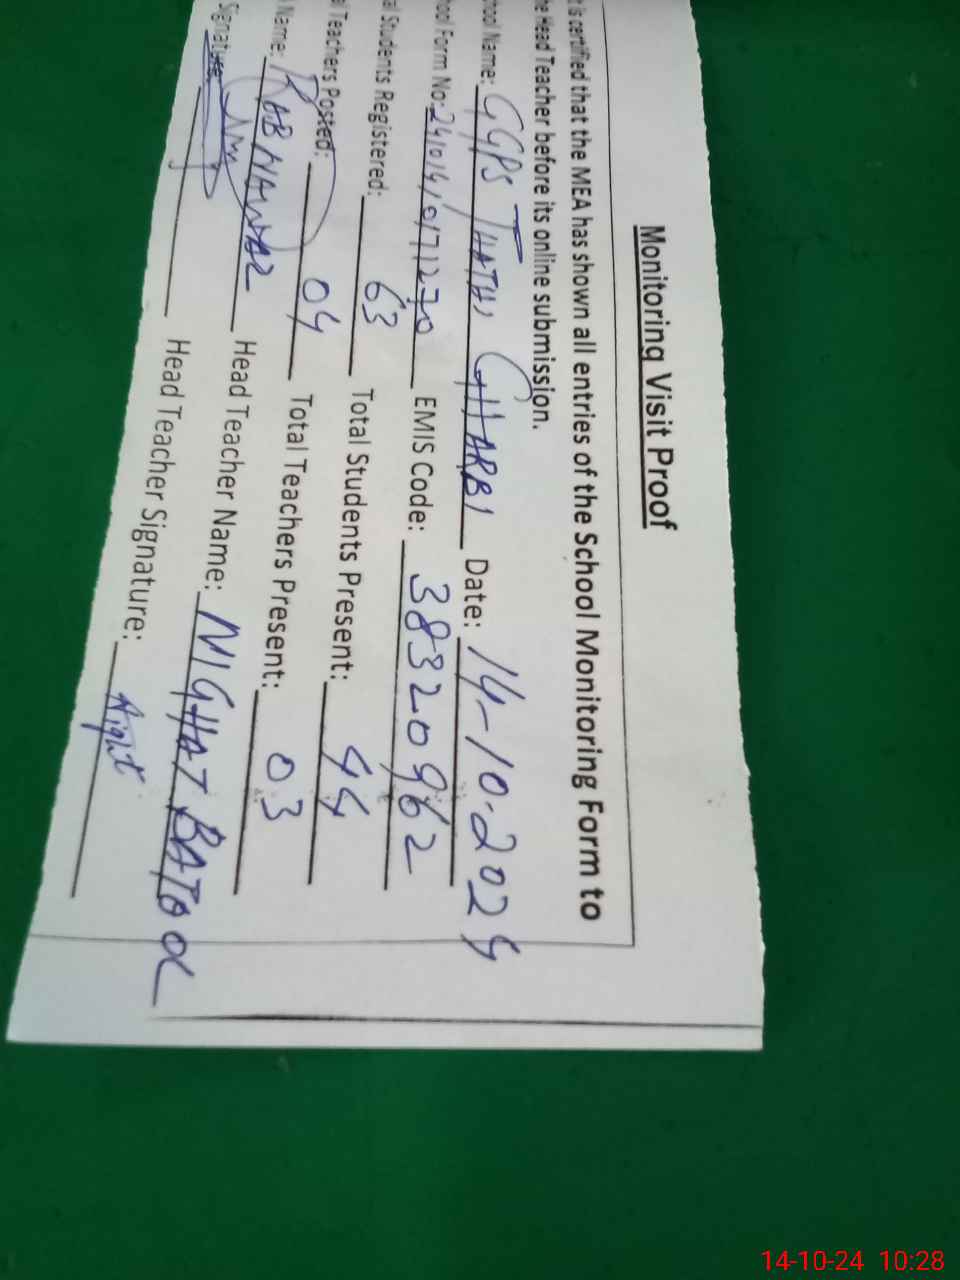 Monitoring Visit Proof
t is certified that the MEA has shown all entries of the School Monitoring Form to
he Head Teacher before its online submission.
ool Name: GGPS THATHI GHARBI Date: 14-10-2024
ool Form No: EMIS Code: 38320962
al Students Registered: 63 Total Students Present: 44
al Teachers Posted: 04 Total Teachers Present: 03
Name: RAB NAWAZ Head Teacher Name: NIGHAT BATOOL
Signature: Head Teacher Signature: Night
14-10-24 10:28